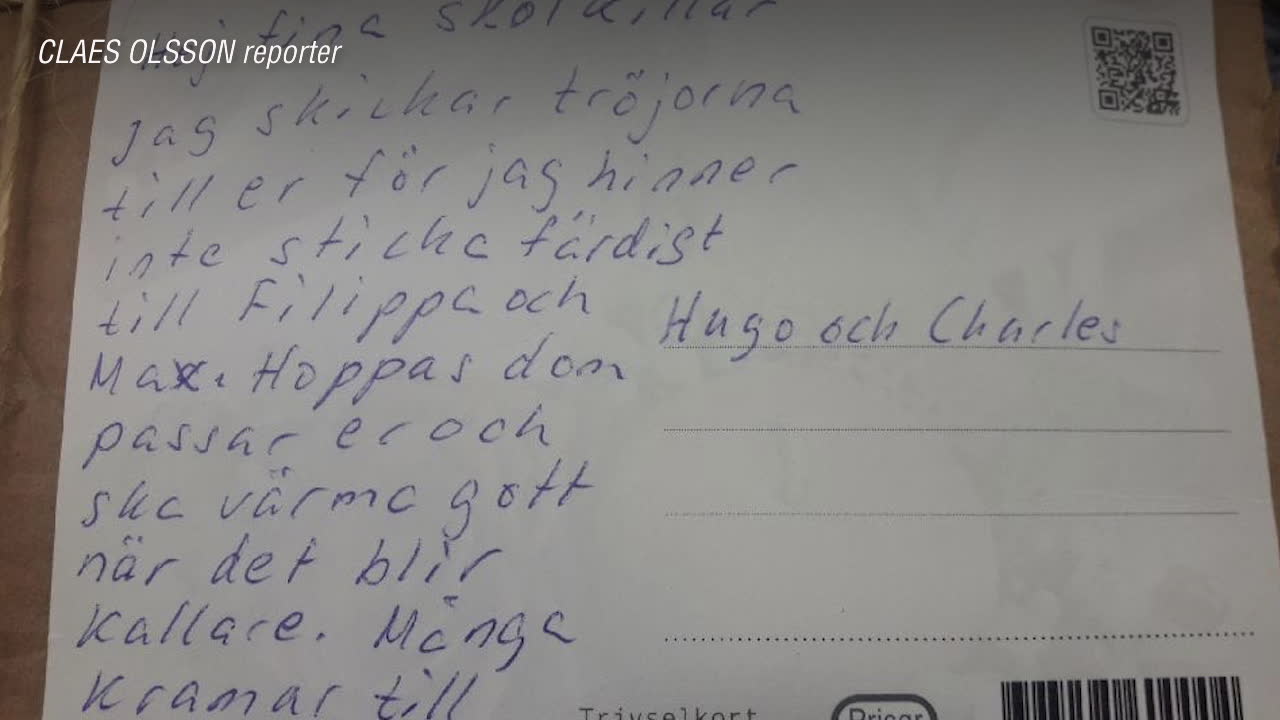 CLAES OLSSON reporter
Hej fina skolkillar
jag skickar tröjorna
till er för jag hinner
inte sticka färdigt
till Filippa och
Max. Hoppas dom
passar er och
ska värma gott
när det blir
Kallare. Många
Kramar till
Hugo och Charles
Trivselkort
Pricer